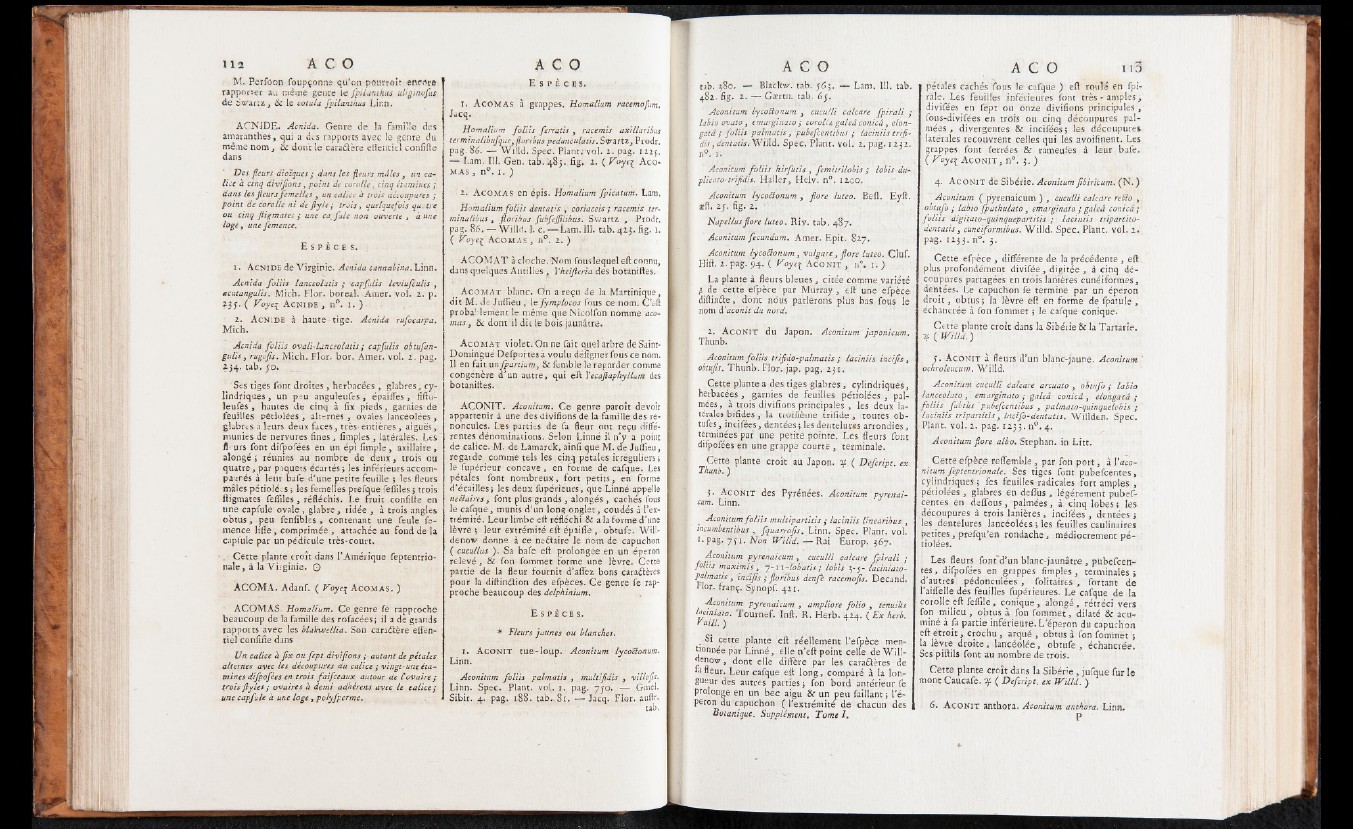 112 A C O
M. Perfoon foupçonne qu'on pourroit encore
rapporter au même genre le fpilanthus uliginofus
de Swartz, & le cotula fpilanthus Linn.
ACNIDE. Acnida. Genre de la famille des
amaranthes, qui a des rapports avec le genre du
même nom, & dont le caractère effentiel confifte
dans
Des fleurs dioïques ; dans les fleurs mâles, un ca-
lice à cinq divifions, point de corolle, cinq étamines ;
dans les fleurs femelles, un calice à trois découpures ;
point de corolle ni de ftyle ; trois, quelquefois quatre
ou cinq ftigmates ; une capfule non ouverte, à une
loge, une femence.
E S P È C E S.
1. ACNIDE de Virginie. Acnida cannabina. Linn.
Acnida foliis lanceolatis ; capfulis leviufculis,
acutangulis. Mich. Flor. boreal. Amer. vol. 2. p.
235. ( Voyez ACNIDE, n°. 1. )
2. ACNIDE à haute tige. Acnida rufocarpa.
Mich.
Acnida foliis ovali-lanceolatis ; capfulis obtufan-
gulis, rugofis. Mich. Flor. bor. Amer. vol. 2. pag.
234. tab. 50.
Ses tiges font droites, herbacées, glabres, cy-
lindriques, un peu anguleufes, épaiffes, fiftu-
leufes, hautes de cinq à fix pieds, garnies de
feuilles pétiolées, alternes, ovales lancéolées,
glabres à leurs deux faces, très-entières, aiguës,
munies de nervures fines, fimples, latérales. Les
fleurs font difpofées en un épi fimple, axillaire,
alongé ; réunies au nombre de deux, trois ou
quatre, par paquets écartés ; les inférieurs accom-
pagnés à leur bafe d'une petite feuille ; les fleurs
mâles pétiolées ; les femelles prefque feffiles ; trois
ftigmates feffiles, réfléchis. Le fruit confifte en
une capfule ovale, glabre, ridée, à trois angles
obtus, peu fenfibles, contenant une feule fe-
mence liffe, comprimée, attachée au fond de la
capfule par un pédicule très-court.
Cette plante croît dans l'Amérique feptentrio-
nale, à la Virginie. ☉
ACOMA. Adanf. ( Voyez ACOMAS. )
ACOMAS. Homalium. Ce genre fe rapproche
beaucoup de la famille des rofacées ; il a de grands
rapports avec les blakwellia. Son caractère effen-
tiel confifte dans
Un calice à fix ou fept divifions ; autant de pétales
alternes avec les découpures du calice ; vingt-une éta-
mines difpofées en trois faifceaux autour de l'ovaire ;
trois ftyles ; ovaires à demi adhérens avec le calice ;
une capfule à une loge, polyfperme.
A C O
E S P È C E S.
1. ACOMAS à grappes. Homalium racemofum.
Jacq.
Homalium foliis ferratis, racemis axillaribus
terminalibufque, floribus pedunculatis. Swartz, Prodr.
pag. 86. — Willd. Spec. Plant. vol. 2. pag. 1225.
— Lam. Ill. Gen. tab. 483. fig. 2. ( Voyez ACO-
MAS, n°. 1. )
2. ACOMAS en épis. Homalium fpicatum. Lam.
Homalium foliis dentatis, coriaceis ; racemis ter-
minalibus, floribus fubfeffilibus. Swartz, Prodr.
pag. 86. — Willd. l. c. — Lam. Ill. tab. 423. fig. 1.
( Voyez ACOMAS, n°. 2. )
ACOMAT à cloche. Nom fous lequel eft connu,
dans quelques Antilles, l'heifteria des botaniftes.
ACOMAT blanc. On a reçu de la Martinique,
dit M. de Juffieu, le fymplocos fous ce nom. C'eft
probablement le même que Nicolfon nomme aco-
mas, & dont il dit le bois jaunâtre.
ACOMAT violet. On ne fait quel arbre de Saint-
Domingue Defportes a voulu défigner fous ce nom.
Il en fait un fpartium, & femble le regarder comme
congenère d'un autre, qui eft l'ecaftaphyllum des
botaniftes.
ACONIT. Aconitum. Ce genre paroît devoir
appartenir à une des divifions de la famille des re-
noncules. Les parties de fa fleur ont reçu diffé-
rentes dénominations. Selon Linné il n'y a point
de calice. M. de Lamarck, ainfi que M. de Juffieu,
regarde comme tels les cinq pétales irréguliers ;
le fupérieur concave, en forme de cafque. Les
pétales font nombreux, fort petits, en forme
d'écailles ; les deux fupérieurs, que Linné appelle
nectaires, font plus grands, alongés, cachés fous
le cafque, munis d'un long onglet, coudés à l'ex-
trémité. Leur limbe eft réfléchi & a la forme d'une
lèvre ; leur extrémité eft épaiffie, obtufe. Will-
denow donne à ce nectaire le nom de capuchon
( cucullus ). Sa bafe eft prolongée en un éperon
relevé, & fon fommet forme une lèvre. Cette
partie de la fleur fournit d'affez bons caractères
pour la diftinction des efpèces. Ce genre fe rap-
proche beaucoup des delphinium.
E S P È C E S.
* Fleurs jaunes ou blanches.
1. ACONIT tue-loup. Aconitum lycoctonum.
Linn.
Aconitum foliis palmatis, multifidis, villofis.
Linn. Spec. Plant. vol. 1. pag. 750. — Gmel.
Sibir. 4. pag. 188. tab. 81. — Jacq. Flor. auftr.
tab.
A C O
tab. 280. — Blackw. tab. 563. — Lam. Ill. tab.
482. fig. 2. — Gærtn. tab. 65.
Aconitum lycoctonum, cuculli calcare fpirali ;
labio ovato, emarginato ; corollæ galeâ conicâ, elon-
gatâ ; foliis palmatis, pubefcentibus ; laciniis trifi-
dis, dentatis. Willd. Spec. Plant. vol. 2. pag. 1232.
n°. 1.
Aconitum foliis hirfutis, femitrilobis ; lobis du-
plicato-trifidis. Haller, Helv. n°. 1200.
Aconitum lycoctonum, flore luteo. Befl. Eyft.
æft. 25. fig. 2.
Napellus flore luteo. Riv. tab. 487.
Aconitum fecundum. Amer. Epit. 827.
Aconitum lycoctonum, vulgare, flore luteo. Cluf.
Hift. 2. pag. 94. ( Voyez ACONIT, n°. 1. )
La plante à fleurs bleues, citée comme variété
β de cette efpèce par Murray, eft une efpèce
diftincte, dont nous parlerons plus bas fous le
nom d'aconit du nord.
2. ACONIT du Japon. Aconitum japonicum.
Thunb.
Aconitum foliis trifido-palmatis ; laciniis incifis,
obtufis. Thunb. Flor. jap. pag. 231.
Cette plante a des tiges glabres, cylindriques,
herbacées, garnies de feuilles pétiolées, pal-
mées, à trois divifions principales, les deux la-
térales bifides, la troifième trifide, toutes ob-
tufes, incifées, dentées ; les dentelures arrondies,
terminées par une petite pointe. Les fleurs font
difpofées en une grappe courte, terminale.
Cette plante croît au Japon. ♃ ( Defcript. ex
Thunb. )
3. ACONIT des Pyrénées. Aconitum pyrenai-
cum. Linn.
Aconitum foliis multipartitis ; laciniis linearibus,
incumbentibus, fquarrofis. Linn. Spec. Plant. vol.
1. pag. 751. Non Willd. — Rai Europ. 367.
Aconitum pyrenaicum, cuculli calcare fpirali ;
foliis maximis, 7-11-lobatis ; lobis 3-5- laciniato-
palmatis, incifis ; floribus denfè racemofis. Decand.
Flor. franç. Synopf. 421.
Aconitum pyrenaicum, ampliore folio, tenuiùs
laciniato. Tournef. Inft. R. Herb. 424. ( Ex herb.
Vaill. )
Si cette plante eft réellement l'efpèce men-
tionnée par Linné, elle n'eft point celle de Will-
denow, dont elle diffère par les caractères de
fa fleur. Leur cafque eft long, comparé à la lon-
gueur des autres parties ; fon bord antérieur fe
prolonge en un bec aigu & un peu faillant ; l'é-
peron du capuchon ( l'extrémité de chacun des
Botanique. Supplément. Tome I.
A C O 113
pétales cachés fous le cafque ) eft roulé en fpi-
rale. Les feuilles inférieures font très-amples,
divifées en fept ou onze divifions principales,
fous-divifées en trois ou cinq découpures pal-
mées, divergentes & incifées ; les découpures
latérales recouvrent celles qui les avoifinent. Les
grappes font ferrées & rameufes à leur bafe.
( Voyez ACONIT, n°. 3. )
4. ACONIT de Sibérie. Aconitum fibiricum. (N.)
Aconitum ( pyrenaicum ), cuculli calcare recto,
obtufo ; labio fpathulato, emarginato ; galeâ conicâ ;
foliis digitato-quinquepartitis ; laciniis tripartito-
dentatis, cuneiformibus. Willd. Spec. Plant. vol. 2.
pag. 1233. n°. 3.
Cette efpèce, différente de la précédente, eft
plus profondément divifée, digitée, à cinq dé-
coupures partagées en trois lanières cunéiformes,
dentées. Le capuchon fe termine par un éperon
droit, obtus ; la lèvre eft en forme de fpatule,
échancrée à fon fommet ; le cafque conique.
Cette plante croît dans la Sibérie & la Tartarie.
♃ ( Willd. )
5. ACONIT à fleurs d'un blanc-jaune. Aconitum
ochroleucum. Willd.
Aconitum cuculli calcare arcuato, obtufo ; labio
lanceolato, emarginato ; galeâ conicâ, elongatâ ;
foliis fubtùs pubefcentibus, palmato-quinquelobis ;
laciniis tripartitis, incifo-dentatis. Willden. Spec.
Plant. vol. 2. pag. 1233. n°. 4.
Aconitum flore albo. Stephan. in Litt.
Cette efpèce reffemble, par fon port, à l'aco-
nitum feptentrionale. Ses tiges font pubefcentes,
cylindriques ; fes feuilles radicales fort amples,
pétiolées, glabres en deffus, légérement pubef-
centes en deffous, palmées, à cinq lobes ; les
découpures à trois lanières, incifées, dentées ;
les dentelures lancéolées ; les feuilles caulinaires
petites, prefqu'en rondache, médiocrement pé-
tiolées.
Les fleurs font d'un blanc-jaunâtre, pubefcen-
tes, difpofées en grappes fimples, terminales ;
d'autres pédonculées, folitaires, fortant de
l'aiffelle des feuilles fupérieures. Le cafque de la
corolle eft feffile, conique, alongé, rétréci vers
fon milieu, obtus à fon fommet, dilaté & acu-
miné à fa partie inférieure. L'éperon du capuchon
eft étroit, crochu, arqué, obtus à fon fommet ;
la lèvre droite, lancéolée, obtufe, échancrée.
Ses piftils font au nombre de trois.
Cette plante croît dans la Sibérie, jufque fur le
mont Caucafe. ♃ ( Defcript. ex Willd. )
6. ACONIT anthora. Aconitum anthora. Linn.
P